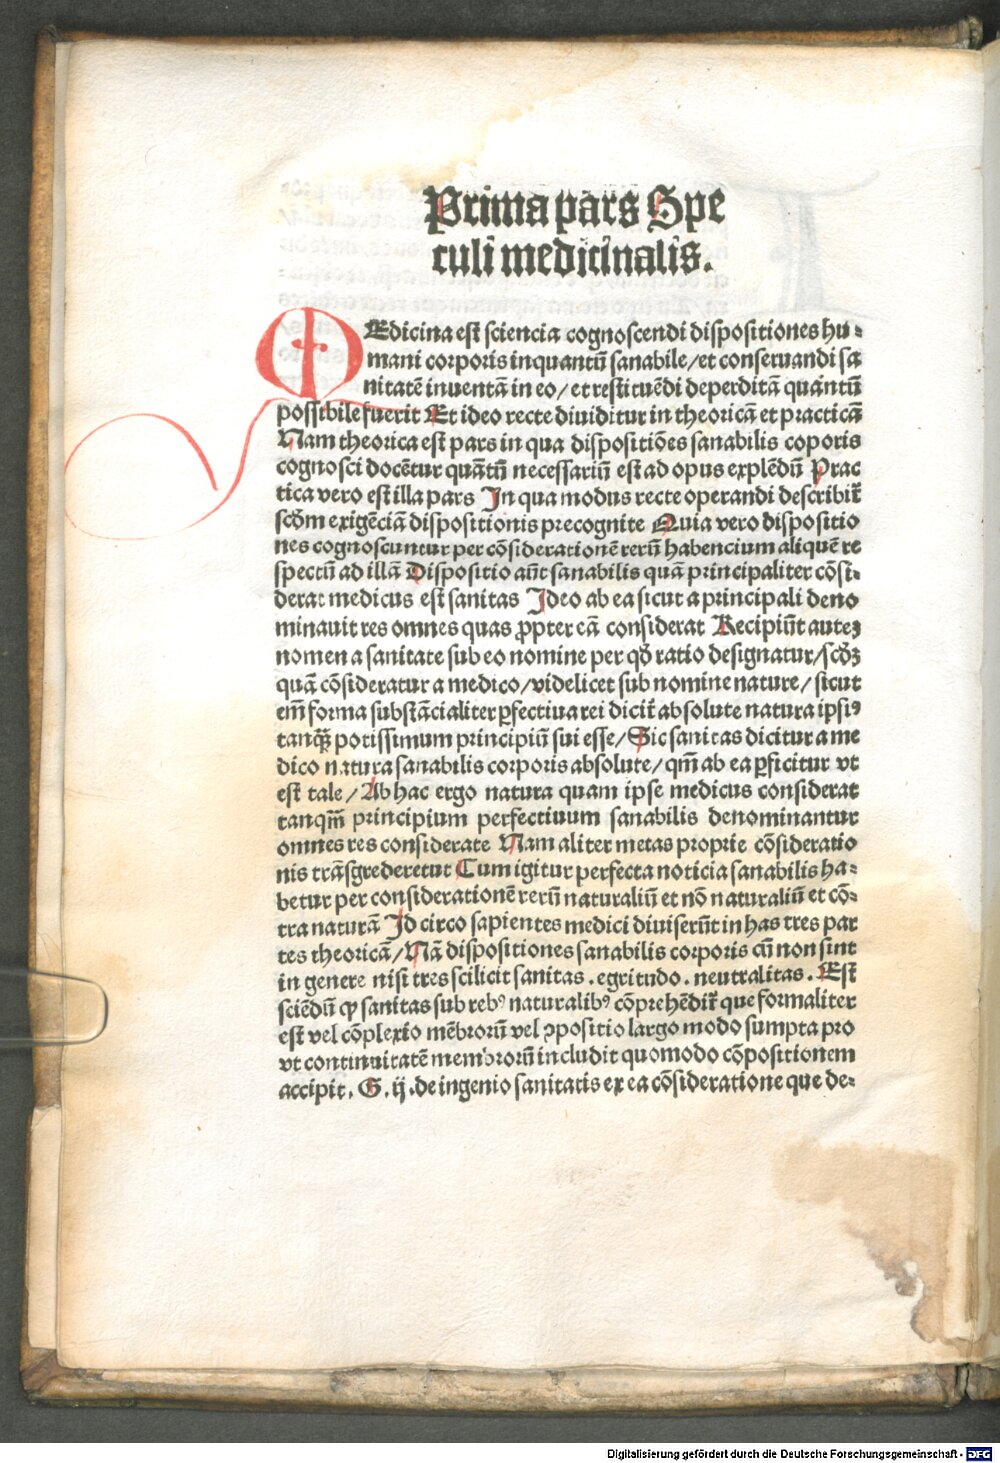 Prima pars Spe
culi medicinalis.
MEdicina est sciencia cognoscendi dispositiones hu-
mani corporis inquantū sanabile/et conseruandi sa
nitatē inuentā in eo/et restituēdi deperditā quantū
possibile fuerit Et ideo recte diuiditur in theoricā et practicā
Nam theorica est pars in qua dispositiōes sanabilis coporis
cognosci docētur quātū necessariū est ad opus explēdū Prac
tica vero est illa pars In qua modus recte operandi describit᷑
scđm exigēciā dispositionis precognite Quia vero dispositio
nes cognoscuntur per cōsiderationē rerū habencium aliquē re
spectū ad illā Dispositio aūt sanabilis quā principaliter cōsi-
derat medicus est sanitas Ideo ab ea sicut a principali deno
minauit res omnes quas ꝓpter eā considerat Recipiūt auteꝫ
nomen a sanitate sub eo nomine per qđ ratio designatur/scđꝫ
quā cōsideratur a medico/videlicet sub nomine nature/sicut
em̄ forma substācialiter ꝑfectiua rei dicit᷑ absolute natura ipsiꝰ
tanqȝ̄ potissimum principiū sui esse/Sic sanitas dicitur a me
dico natura sanabilis corporis absolute/qm̄ ab ea ꝑficitur vt
est tale/Ab hac ergo natura quam ipse medicus considerat
tanqm̄ principium perfectiuum sanabilis denominantur
omnes res considerate Nam aliter metas proprie cōsideratio
nis trāsgrederetur Cum igitur perfecta noticia sanabilis ha-
betur per considerationē rerū naturaliū et nō naturaliū et cō-
tra naturā Id circo sapientes medici diuiserūt in has tres par
tes theoricā/Nā dispositiones sanabilis corporis cū non sint
in genere nisi tres scilicit sanitas.egritudo.neutralitas.Est
sciēdū ꝙ sanitas sub rebꝰ naturalibꝰ cōprehēdit᷑ que formaliter
est vel cōplexio mēbrorū vel ꝯpositio largo modo sumpta pro
vt continuitatē membrorū includit quomodo cōpositionem
accipit.G.ij.de ingenio sanitatis ex ea cōsideratione que de-
Digitalisierung gefördert durch die Deutsche Forschungsgemeinschaft - DFG